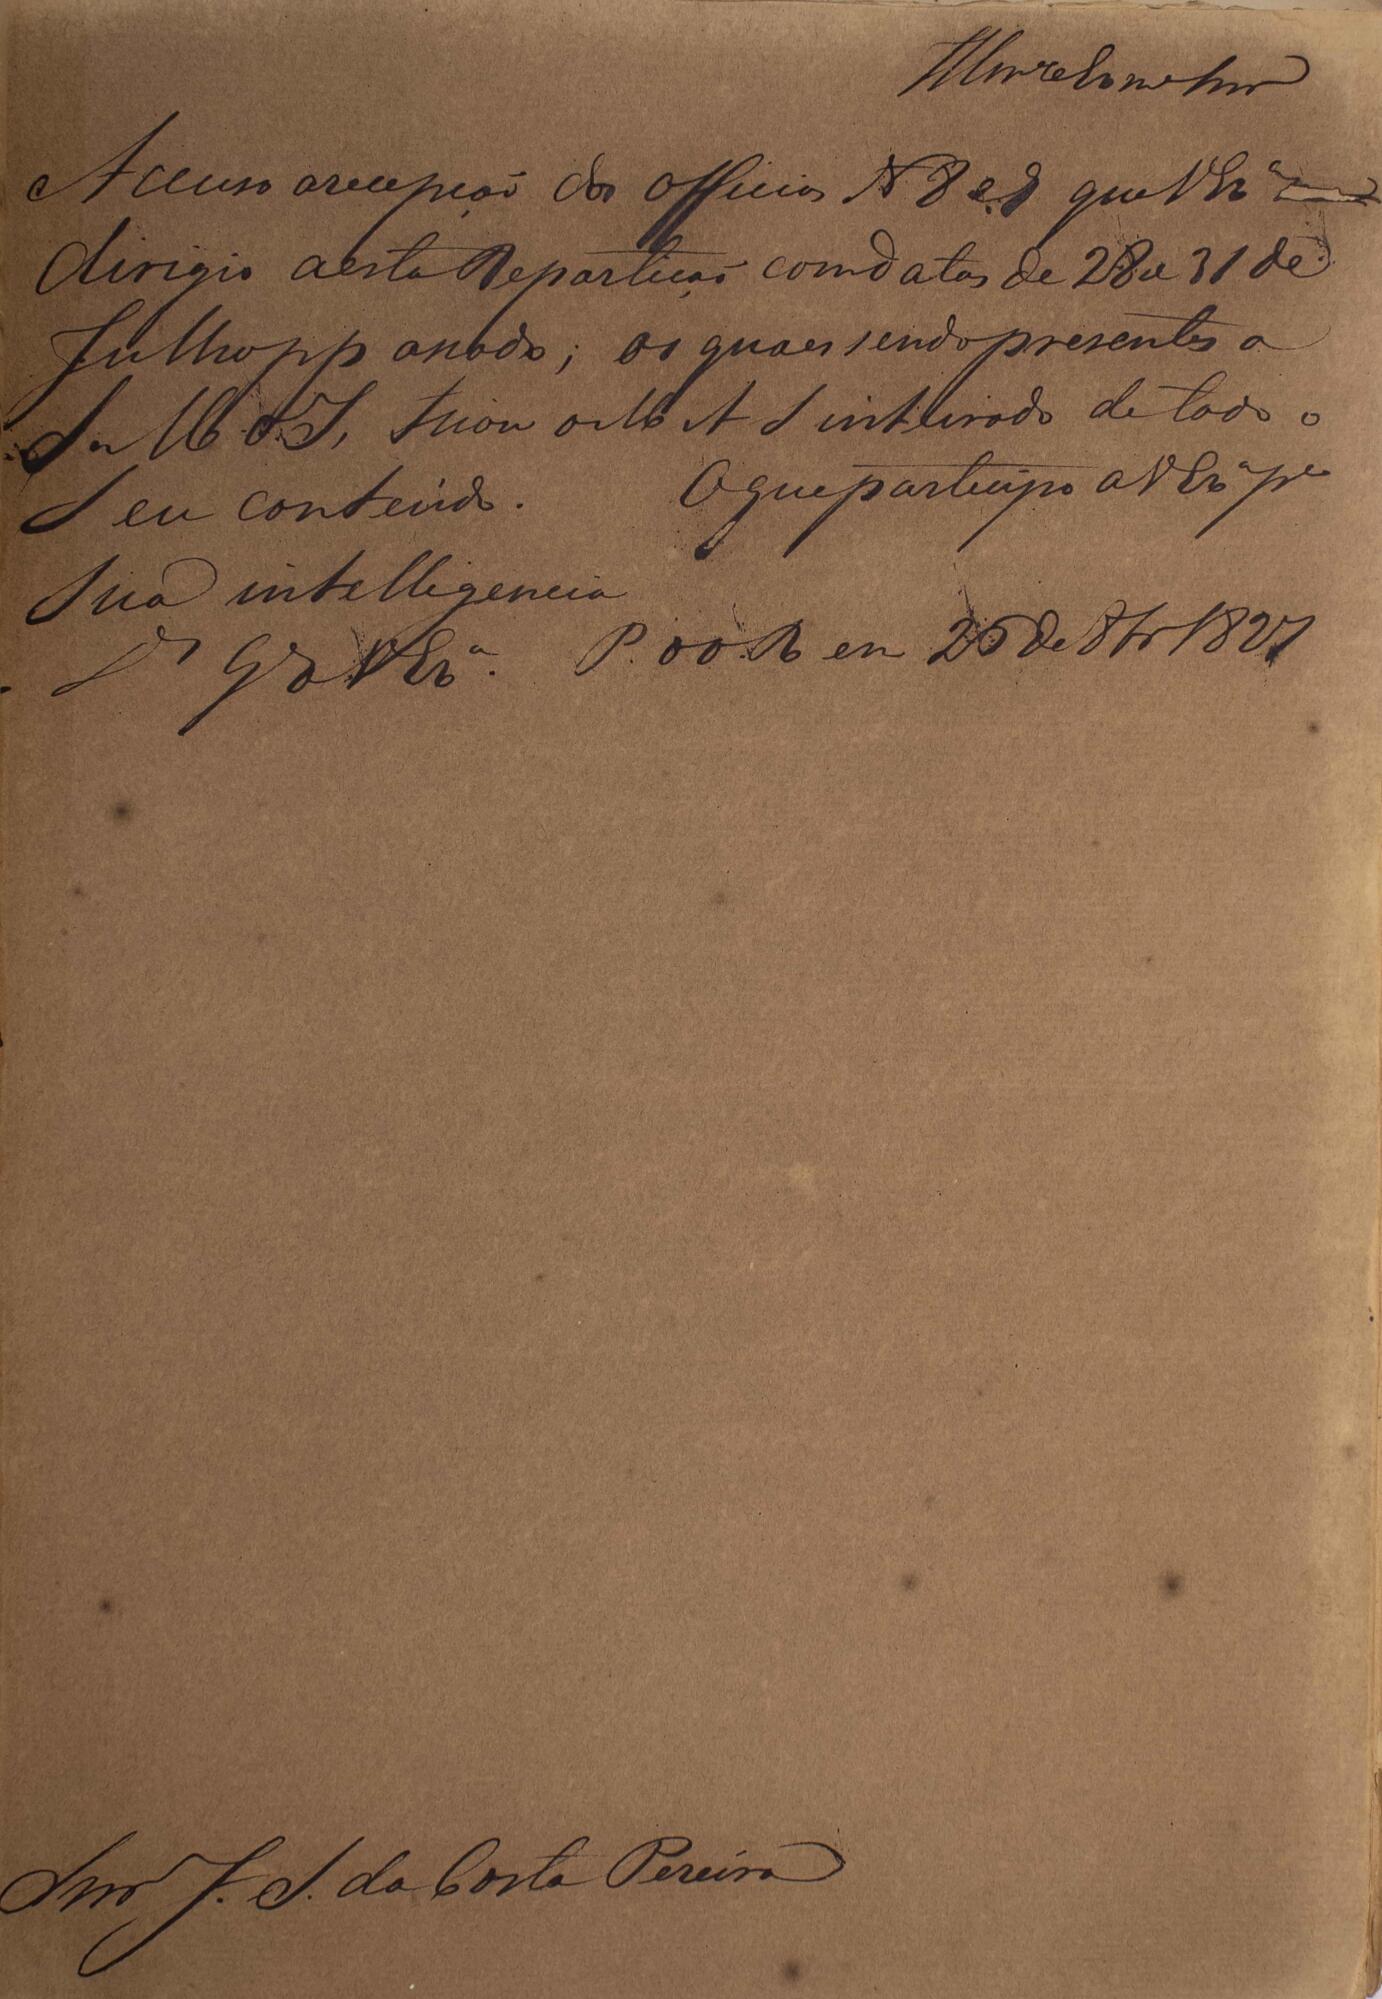 Illmo e Exmo Snr
Accuso a recepção dos officios N 8 e 9 que V Exa
dirigio a esta Repartição com datas de 28 e 31 de
Julho pp assado; os quaes sendo presentes a
S M O I, ficou o M A S inteirado de todo o
Seu conteúdo. O que participo a V Exa pa
Sua intelligencia
Ds Gde V Exa. P. do R em 26 de 8br 1827
Snr J. S. da Costa Pereira